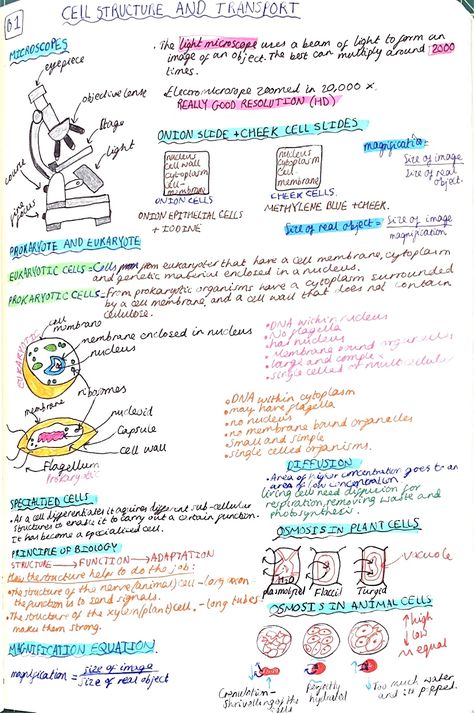 B1
CELL STRUCTURE AND TRANSPORT
MICROSCOPES
eyepiece
objective lense
Stage
light
fine
focus
• The light microscope uses a beam of light to form an
image of an object. The best can multiply around 2000
times.
• Electromicroscope zoomed in 20,000 x.
REALLY GOOD RESOLUTION (HD)
ONION SLIDE + CHEEK CELL SLIDES
nucleus
cell wall
cytoplasm
cell-
membrane
ONION CELLS
ONION EPITHELIAL CELLS
+ IODINE
nucleus
cytoplasm
Cell-
membrane
CHEEK CELLS.
METHYLENE BLUE + CHEEK.
magnification =
size of image
size of real
object.
Size of real object = size of image
magnification
PROKARYOTE AND EUKARYOTE
EUKARYOTIC CELLS - Cells from eukaryotes that have a cell membrane, cytoplasm
and genetic material enclosed in a nucleus.
PROKARYOTIC CELLS - From prokaryotic organisms have a cytoplasm surrounded
by a cell membrane, and a cell wall that does not contain
cellulose.
EUKARYOTIC
cell
membrane
membrane enclosed in nucleus
nucleus
ribosomes
• DNA within nucleus
• No flagella
• has nucleus
• Membrane bound organelles
• large and complex
• single celled or multicellular
membrane
nucleoid
Capsule
cell wall
Flagellum
Prokaryotic
• DNA within cytoplasm
• may have flagella
• no nucleus
• no membrane bound organelles
• small and simple
• single celled organisms.
SPECIALIED CELLS
• As a cell differentiates it aquires different sub-cellular
structures to enable it to carry out a certain function.
It has become a specialised cell.
PRINCIPLE OF BIOLOGY
STRUCTURE → FUNCTION → ADAPTATION
• How the structure help to do the job:
• The structure of the nerve (animal) cell - long axon
the function is to send signals.
• The structure of the xylem (plant) cell - long tubes
makes them strong.
MAGNIFICATION EQUATION
magnification = size of image
size of real object
DIFFUSION
• Area of higher concentration goes to an
area of low concentration
living cells need diffusion for
respiration, removing waste and
photosynthesis.
OSMOSIS IN PLANT CELLS
H2O
vacuole
plasmolysed
Flaccid
Turgid
OSMOSIS IN ANIMAL CELLS
↑ high
↓ low
= equal
Crenulation -
Shrivelling of the
cells
Perfectly
hydrated
Too much water
and its popped.